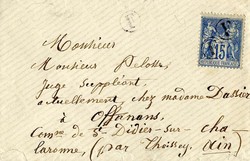 Monsieur
Monsieur Pelosse,
Juge Suppléant,
actuellement, chez madame Dassier
à Offanans,
Cᵐᵐᵉ de Sᵗ Didier-sur-cha
laronne, (par Thoissey, Ain)
15